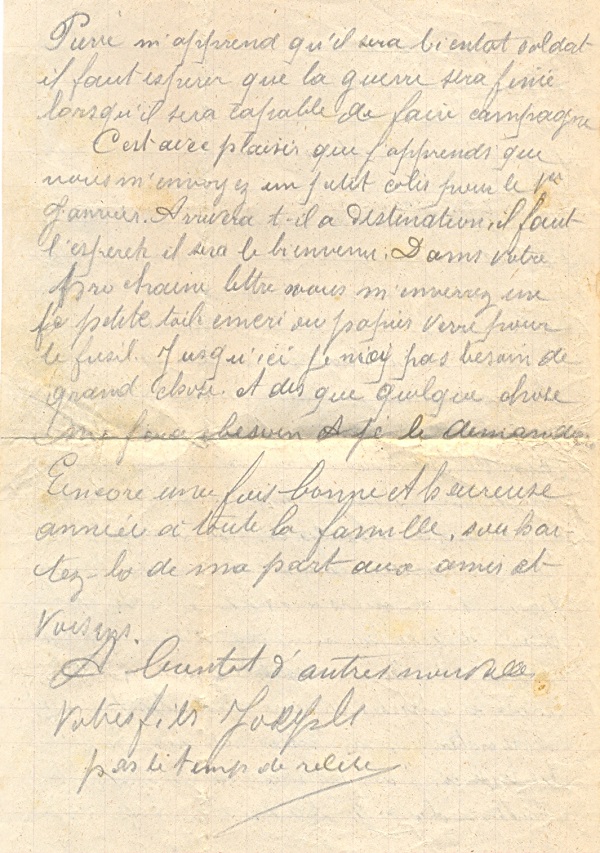 Pierre m'apprend qu'il sera bientot soldat
il faut esperer que la guerre sera finie
lorsqu'il sera capable de faire campagne
C'est avec plaisir que j'apprends que
vous m'envoyez un petit colis pour le 1er
Janvier. Arrivera t-il a destination, il faut
l'esperer il sera le bienvenu. Dans votre
prochaine lettre vous m'enverrez une
petite toile emeri ou papier verre pour
le fusil. Jusqu'ici je n'ai pas besoin de
grand chose. Et des que quelque chose
me fera besoin je le demande
Encore une fois bonne et heureuse
année à toute la famille, souhai-
tez-la de ma part aux amis et
voisins.
A bientot d'autres nouvelles
Votre fils Joseph
pas le temps de relire